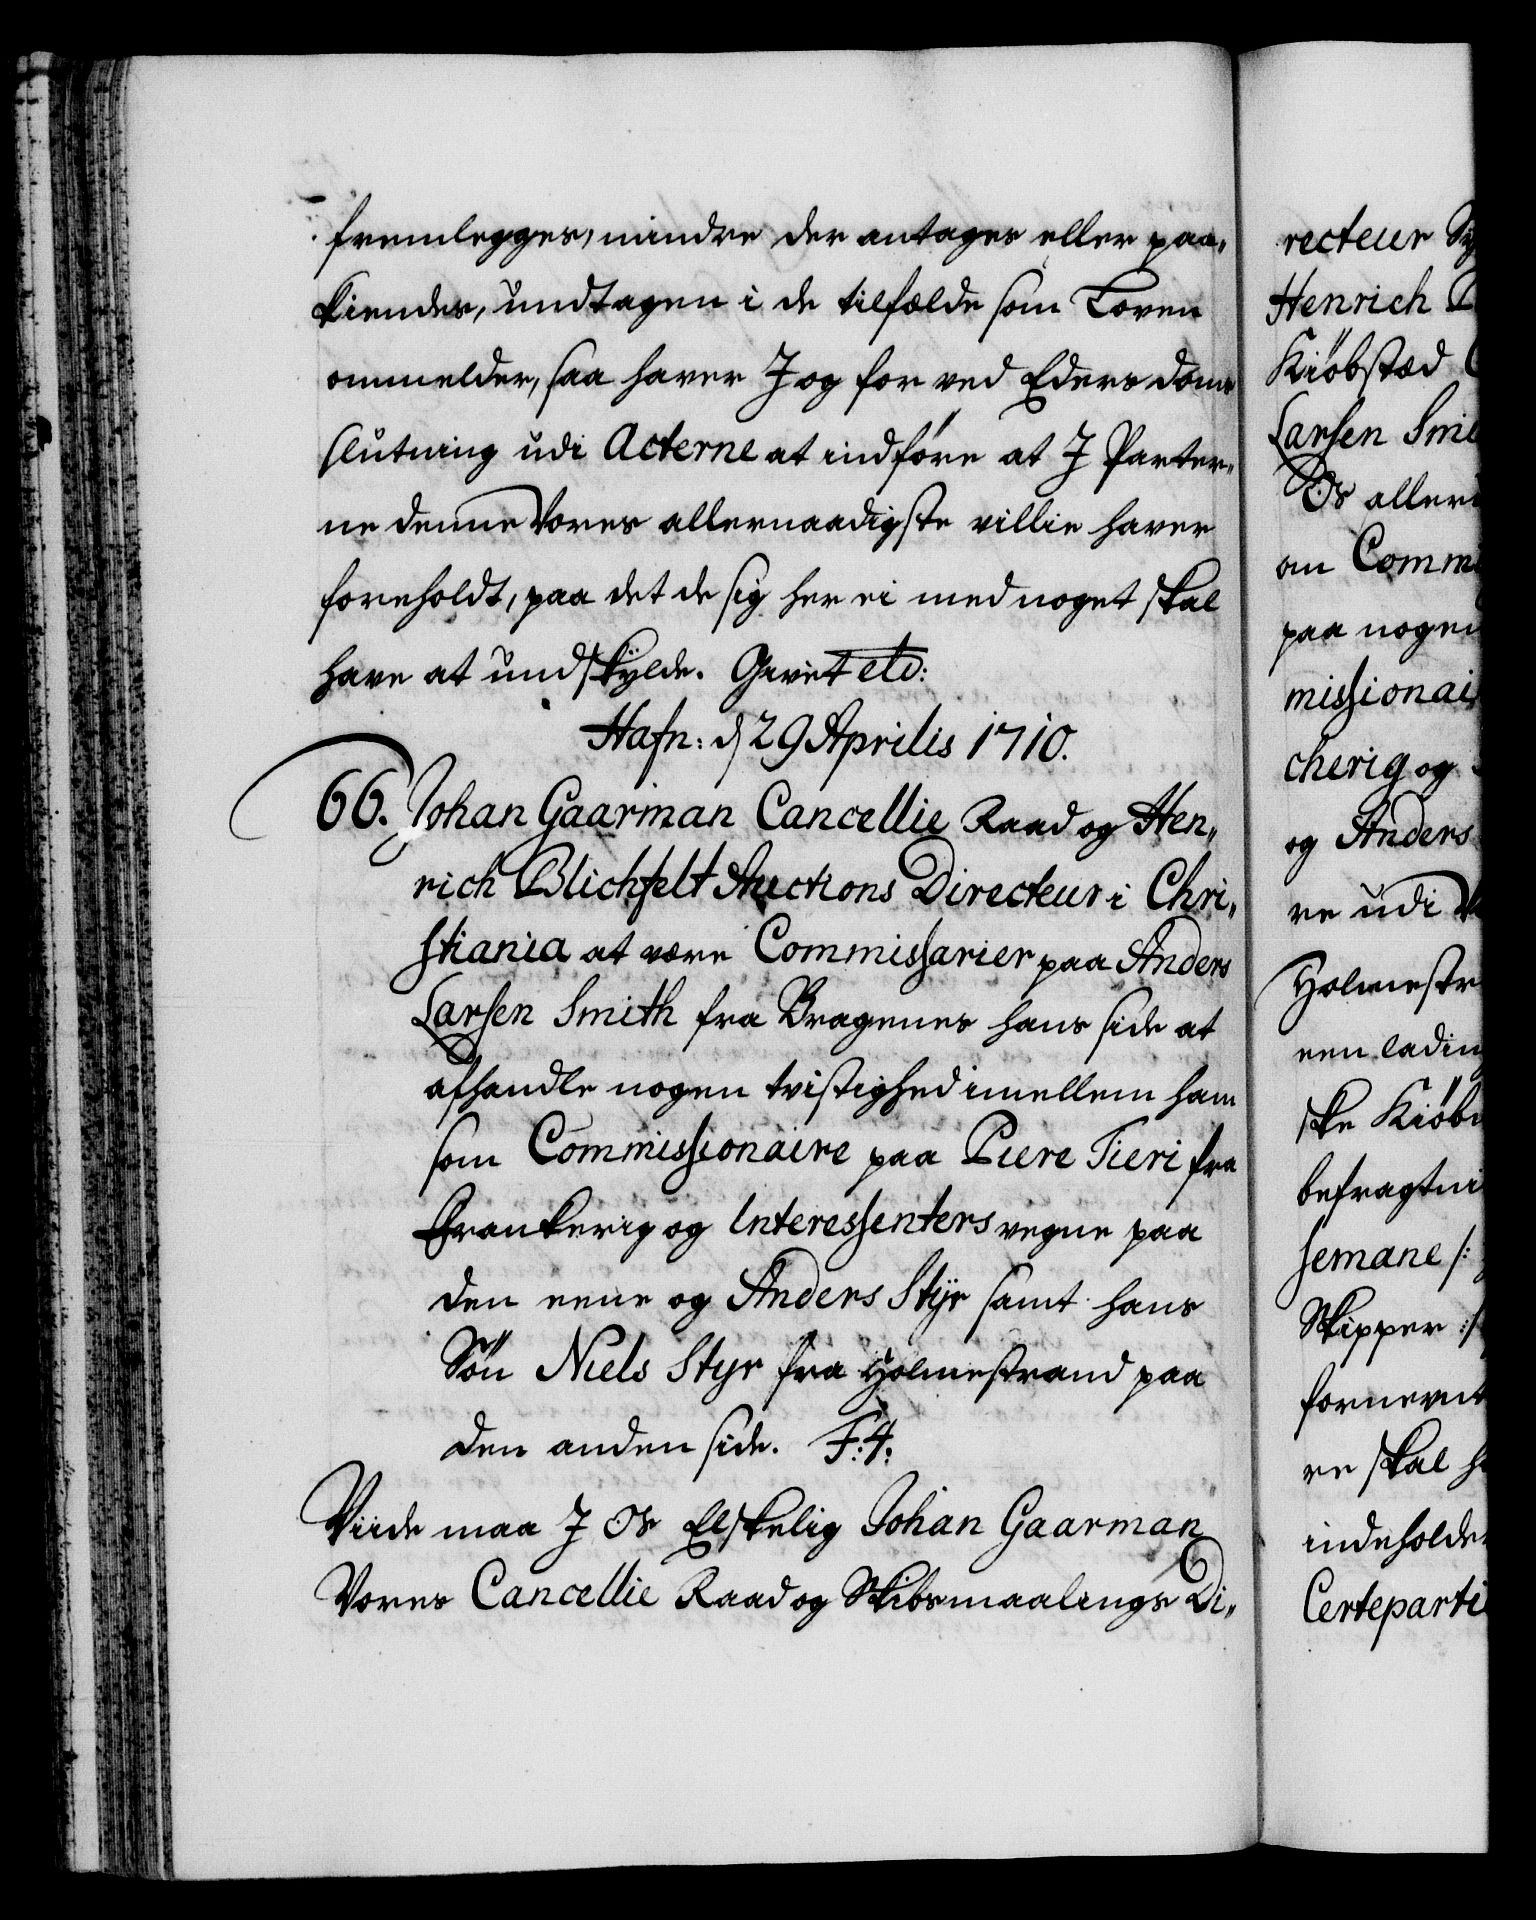 fremlegges, mindre der antages eller paa„
kiendes, undtagen i de tilfælde som Loven
ommelder, saa haver J og for ved Eders doms
slutning udi Acterne at indføre at J Parter„
ne denne Vores allernaadigste villie haver
foreholdt, paa det de sig her ei med noget skal
have at undskylde. Givet etc:
Hafn: d 29 Aprilis 1710.
66. Johan Gaarman Cancellie Raad og Hen„
rich Blichfelt Auctions Directeur i Chri„
stiania at være Commissarier paa Anders
Larsen Smith fra Bragenes hans side at
afhandle nogen tvistighed imellem ham
som Commissionaire paa Piere Tieri fra
Franckerig og Interessenters vegne paa
den eene og Anders Styr samt hans
Søn Niels Styr fra Holmestrand paa
den anden side. F: 4:
Viide maa J Os Elskelig Johan Gaarman
Vores Cancellie Raad og Skibsmaalings Di„
recteur
Henrich
Kiøbstæd
Larsen Smi
Os aller
en Comm
paa nogen
missionai
cherig og
og Anders
re udi
Holmestr
een ladin
ske Kiøb
befragtni
semane /:
Skipper :/
fornevnt
re skal h
indeholde
Certeparti